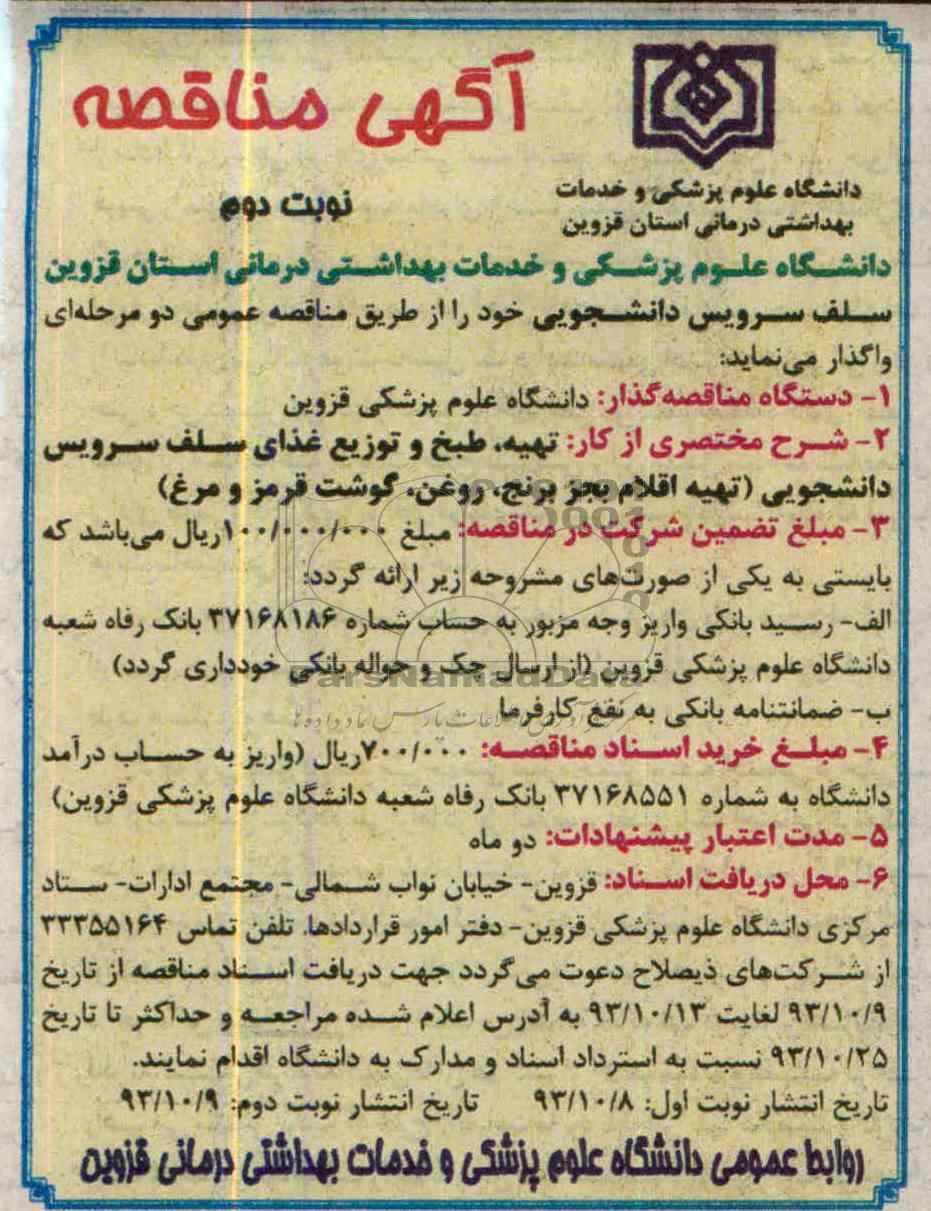 آگهی مناقصه
دانشگاه علوم پزشکی و خدمات
بهداشتی درمانی استان قزوین
نوبت دوم
دانشگاه علوم پزشکی و خدمات بهداشتی درمانی استان قزوین
سلف سرویس دانشجویی خود را از طریق مناقصه عمومی دو مرحله‌ای
واگذار می‌نماید:
۱- دستگاه مناقصه‌گذار: دانشگاه علوم پزشکی قزوین
۲- شرح مختصری از کار: تهیه، طبخ و توزیع غذای سلف سرویس
دانشجویی (تهیه اقلام بجز برنج، روغن، گوشت قرمز و مرغ)
۳- مبلغ تضمین شرکت در مناقصه: مبلغ ۱۰۰/۰۰۰/۰۰۰ریال می‌باشد که
بایستی به یکی از صورت‌های مشروحه زیر ارائه گردد:
الف- رسید بانکی واریز وجه مزبور به حساب شماره ۳۷۱۶۸۱۸۶ بانک رفاه شعبه
دانشگاه علوم پزشکی قزوین (از ارسال چک و حواله بانکی خودداری گردد)
ParsNamadData
ب- ضمانتنامه بانکی به نفع کارفرما
۴- مبلغ خرید اسناد مناقصه: ۷۰۰/۰۰۰ریال (واریز به حساب درآمد
دانشگاه به شماره ۳۷۱۶۸۵۵۱ بانک رفاه شعبه دانشگاه علوم پزشکی قزوین)
۵- مدت اعتبار پیشنهادات: دو ماه
۶- محل دریافت اسناد: قزوین- خیابان نواب شمالی- مجتمع ادارات- ستاد
مرکزی دانشگاه علوم پزشکی قزوین- دفتر امور قراردادها. تلفن تماس ۳۳۳۵۵۱۶۴
از شرکت‌های ذیصلاح دعوت می‌گردد جهت دریافت اسناد مناقصه از تاریخ
۹۳/۱۰/۹ لغایت ۹۳/۱۰/۱۳ به آدرس اعلام شده مراجعه و حداکثر تا تاریخ
۹۳/۱۰/۲۵ نسبت به استرداد اسناد و مدارک به دانشگاه اقدام نمایند.
تاریخ انتشار نوبت اول: ۹۳/۱۰/۸ تاریخ انتشار نوبت دوم: ۹۳/۱۰/۹
روابط عمومی دانشگاه علوم پزشکی و خدمات بهداشتی درمانی قزوین